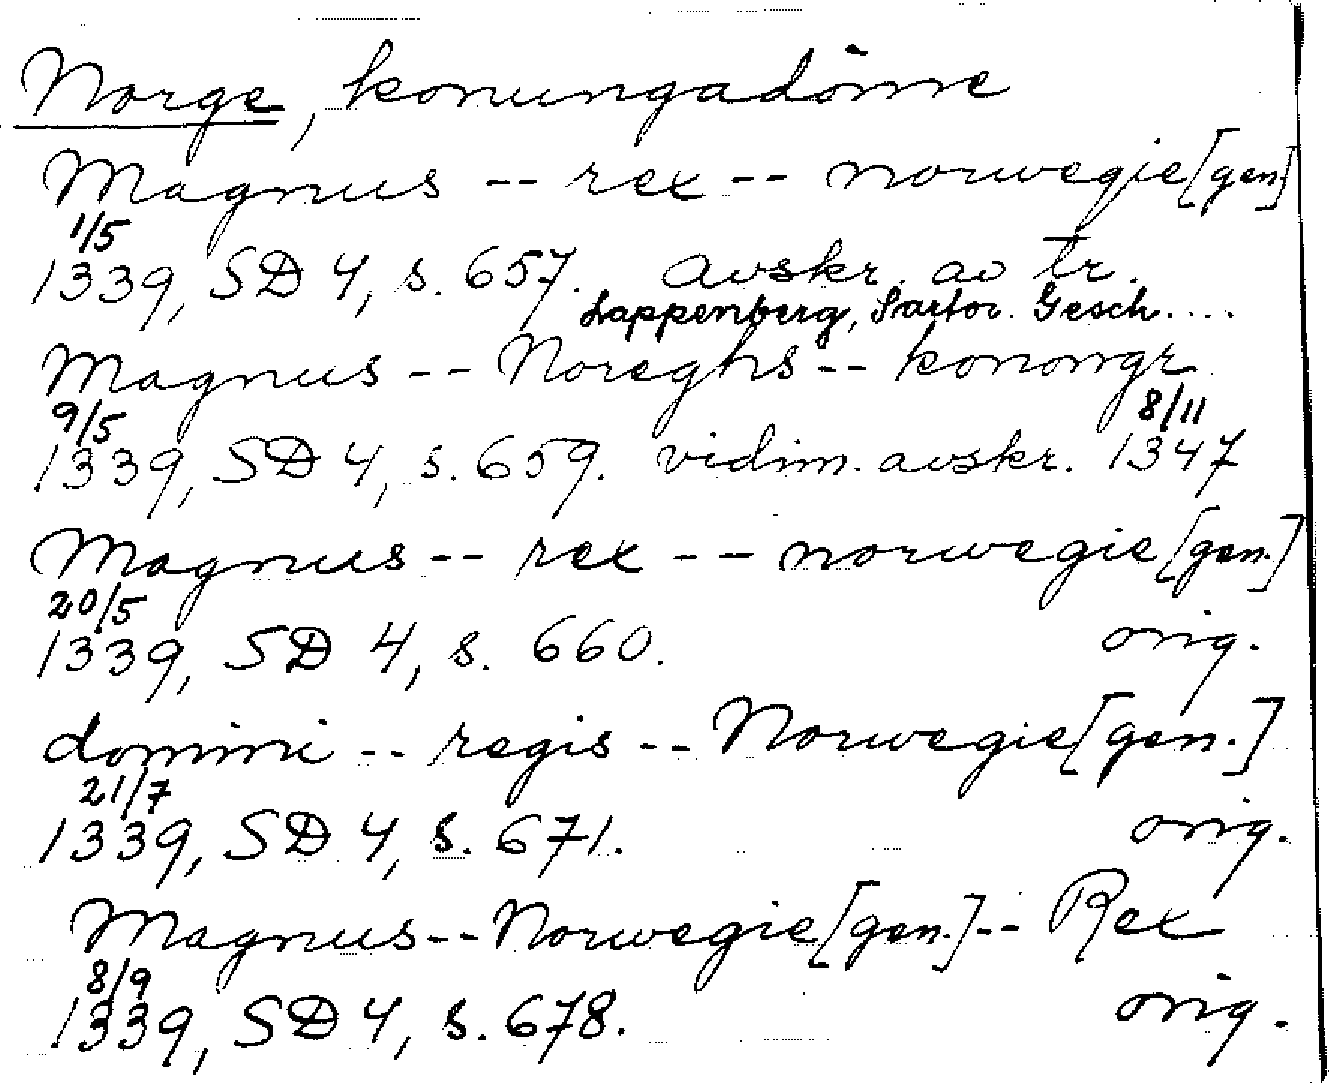 Norge, konungadöme
Magnus -- rex -- norwegie [gen]
1/5
1339, SD 4, s. 657. avskr. av tr.
Lappenberg, Sartor. Gesch....
Magnus -- Noreghs -- konongr
9/5 8/11
1339, SD 4, s. 659. vidim. avskr. 1347
Magnus -- rex -- norwegie [gen.]
20/5
1339, SD 4, s. 660. orig.
domini -- regis -- Norwegie [gen.]
21/7
1339, SD 4, s. 671. orig.
Magnus -- Norwegie [gen.] -- Rex
8/9
1339, SD 4, s. 678. orig.